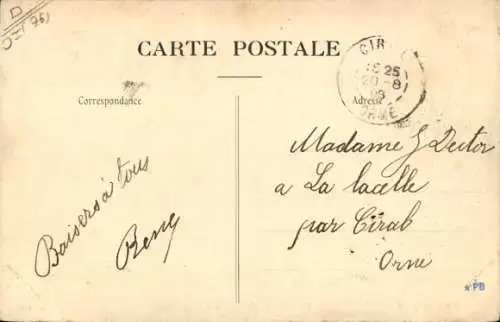 D
CARTE POSTALE
CIR
15 25
20 - 8
ORNE
Correspondance
Adresse
Baisers à tous
René
Madame J Dector
a La lacelle
par Ciral
Orne
*PB